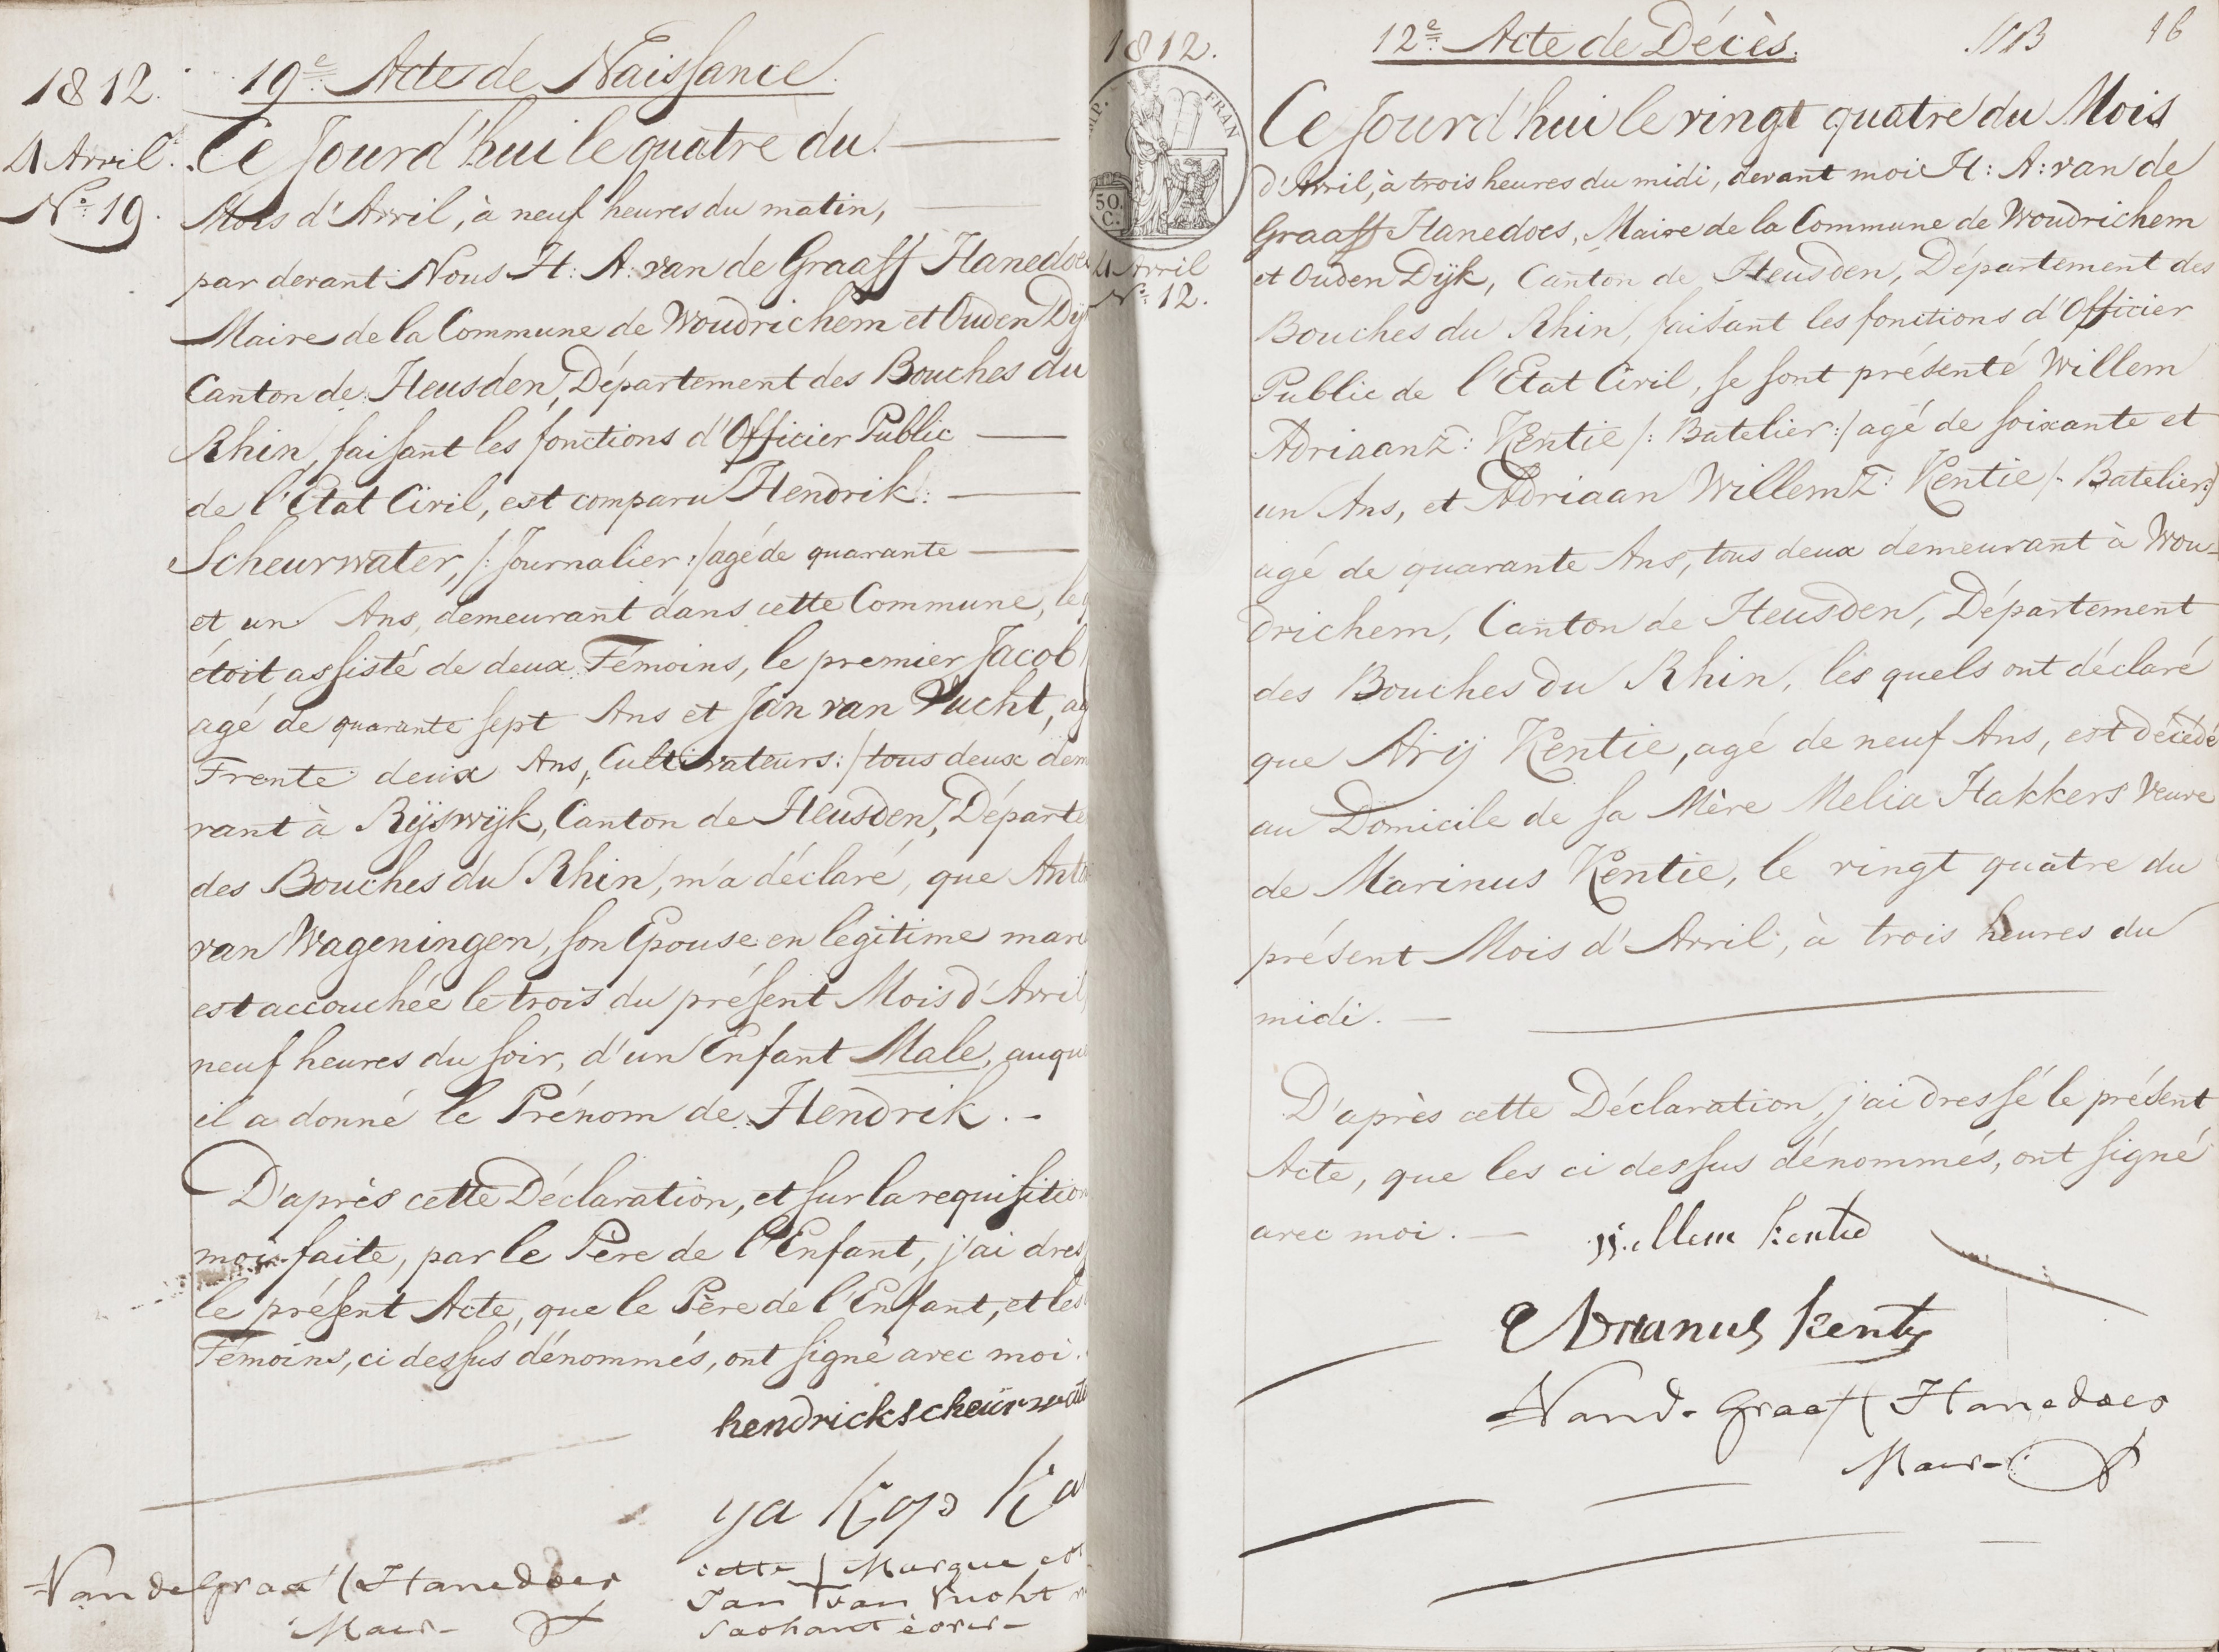 1812.
4 Avril.
No: 19.
19e Acte de Naissance.
Ce Jourd'hui le quatre du
Mois d'Avril, à neuf heures du matin,
par devant Nous H: A: van de Graaff Hanedoes
Maire de la Commune de Woudrichem et Ouden Dyk
Canton de Heusden, Département des Bouches du
Rhin, faisant les fonctions d'Officier Public
de l'Etat Civil, est comparu Hendrik
Scheurwater, /: Journalier :/ agé de quarante
et un Ans, demeurant dans cette Commune,
étoit assisté de deux Témoins, le premier Jacob
agé de quarante sept Ans et Jan van Vucht,
Trente deux Ans, Cultivateurs :/ tous deux dem
rant à Rijswijk, Canton de Heusden, Départe
des Bouches du Rhin, m'a déclaré, que Anto
van Wageningen, son Epouse en légitime mari
est accouchée le trois du présent Mois d'Avril
neuf heures du soir, d'un Enfant Male, auqu
il a donné le Prénom de Hendrik. -
D'après cette Déclaration, et sur la requisition
moi faite, par le Père de l'Enfant, j'ai dres
le présent Acte, que le Père de l'Enfant, et les
Témoins, ci dessus dénommés, ont signé avec moi.
hendrick scheürwate
ya kop Ka
cette Marque est
Jan van Vucht
sachant écrire
Van de Graaff Hanedoes
Maire
1812.
IMP. FRAN
50.
C.
4 Avril
No: 12.
12e Acte de Décès.
16
Ce Jourd'hui le vingt quatre du Mois
d'Avril, à trois heures du midi, devant moi H: A: van de
Graaff Hanedoes, Maire de la Commune de Woudrichem
et Ouden Dijk, Canton de Heusden, Département des
Bouches du Rhin, faisant les fonctions d'Officier
Public de l'Etat Civil, se sont présenté Willem
Adriaanz: Kentie /: Batelier :/ agé de soixante et
un Ans, et Adriaan Willemz: Kentie /: Batelier :/
agé de quarante Ans, tous deux demeurant à Wou-
drichem, Canton de Heusden, Département
des Bouches du Rhin, les quels ont déclaré
que Arij Kentie, agé de neuf Ans, est décédé
au Domicile de sa Mère Melia Hakkers Veuve
de Marinus Kentie, le vingt quatre du
présent Mois d'Avril, à trois heures du
midi. -
D'après cette Déclaration, j'ai dressé le présent
Acte, que les ci dessus dénommés, ont signé
avec moi. -
Willem Kentie
Adrianus Kenty
Van de Graaff Hanedoes
Maire